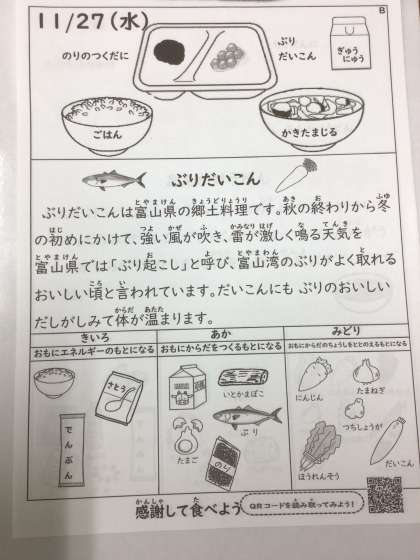 11/27(水)
B
のりのつくだに
ぶり
だいこん
ぎゅう
にゅう
ごはん
かきたまじる
ぶりだいこん
とやまけん きょうどりょうり あき お ふゆ
ぶりだいこんは富山県の郷土料理です。秋の終わりから冬
はじ つよ かぜ ふ かみなり はげ な てんき
の初めにかけて、強い風が吹き、雷が激しく鳴る天気を
とやまけん お よ とやまわん と
富山県では「ぶり起こし」と呼び、富山湾のぶりがよく取れる
ころ い
おいしい頃と言われています。だいこんにも ぶりのおいしい
からだ あたた
だしがしみて体が温まります。
きいろ
あか
みどり
おもにエネルギーのもとになる
おもにからだをつくるもとになる
おもにからだのちょうしをととのえるもとになる
さとう
でんぷん
いとかまぼこ
ぶり
たまご
のり
にんじん
たまねぎ
つちしょうが
ほうれんそう
だいこん
かんしゃ た
感謝して食べよう
QRコードを読み取ってみよう!